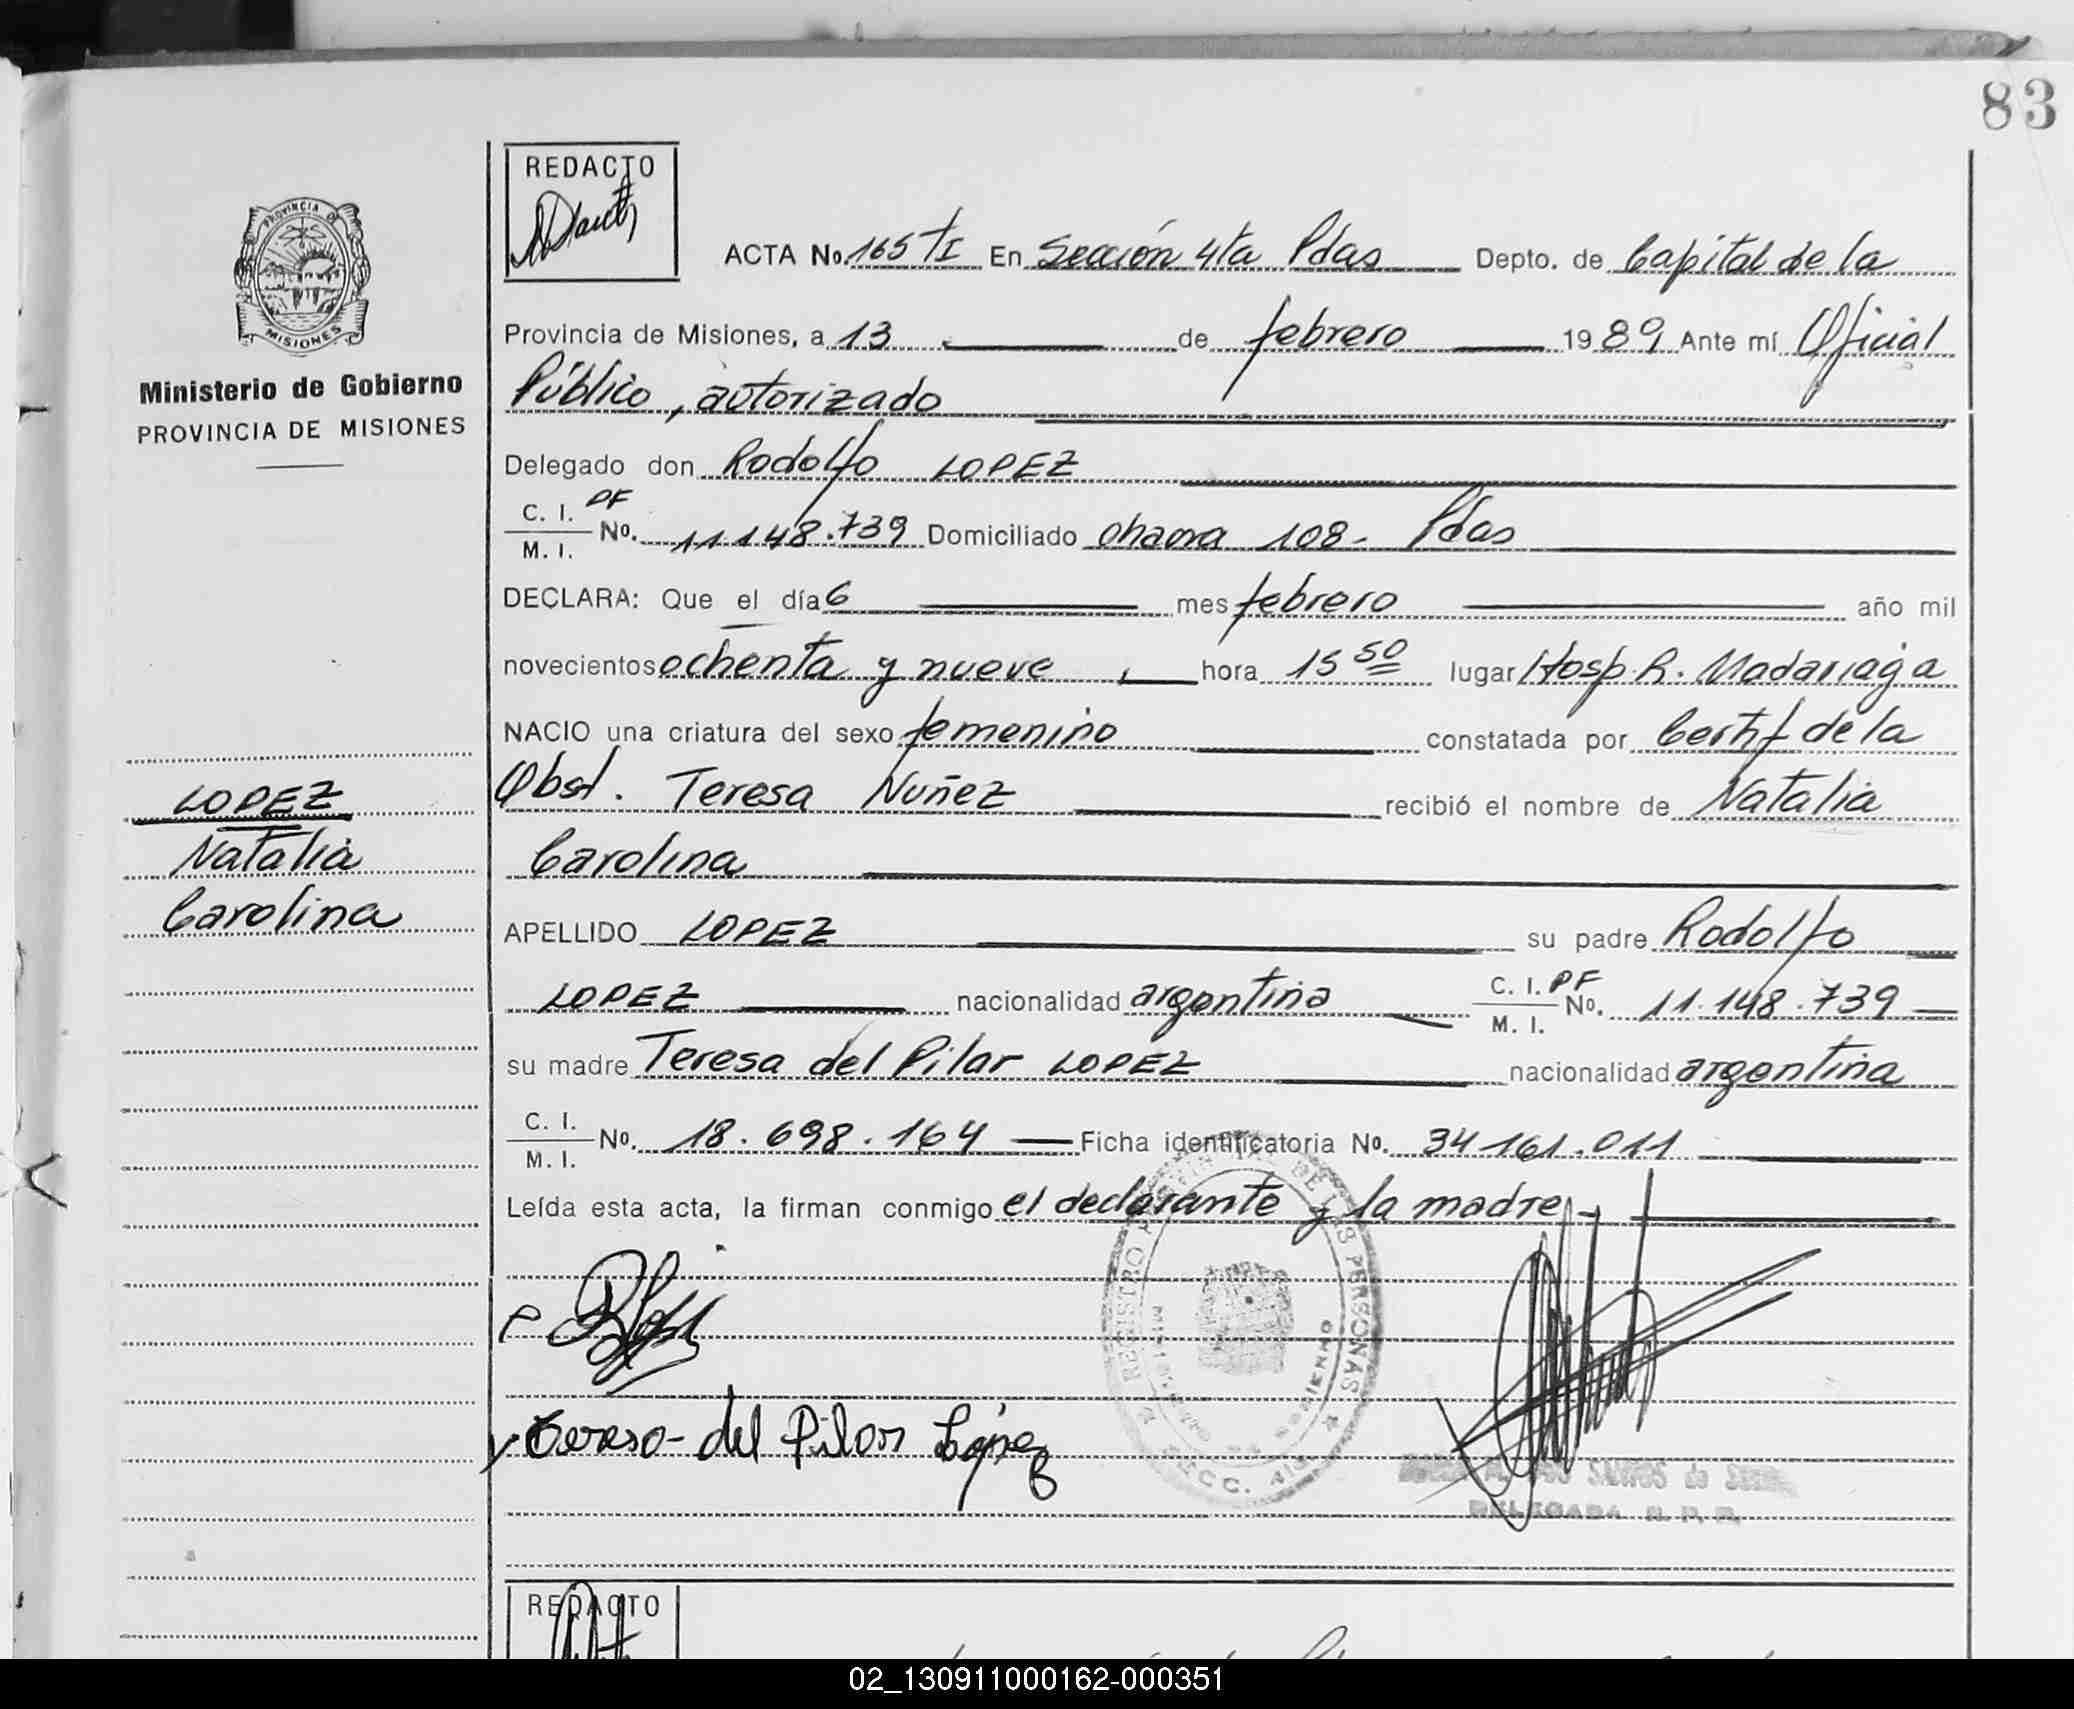 83
REDACTO
PROVINCIA DE
MISIONES
Ministerio de Gobierno
PROVINCIA DE MISIONES
ACTA No. 165 tI En Sección 4ta Pdas Depto. de Capital de la
Provincia de Misiones, a 13 de febrero 1989 Ante mí Oficial
Público, autorizado
Delegado don Rodolfo LOPEZ
C. I. PF
M. I. No. 11.148.739 Domiciliado chacra 108- Pdas
DECLARA: Que el día 6 mes febrero año mil
novecientos ochenta y nueve, hora 15 50 lugar Hosp. R. Madariaga
NACIO una criatura del sexo femenino constatada por Certif de la
Obst. Teresa Nuñez recibió el nombre de Natalia
Carolina
LOPEZ
Natalia
Carolina
APELLIDO LOPEZ su padre Rodolfo
LOPEZ nacionalidad argentina C. I. PF M. I. No. 11.148.739
su madre Teresa del Pilar LOPEZ nacionalidad argentina
C. I. M. I. No. 18.698.164 Ficha identificatoria No. 34161.011
Leída esta acta, la firman conmigo el declarante y la madre-
REGISTRO DE LAS PERSONAS
Tereso- del Pilar López
SANTOS de
DELEGADA R. P. P.
REDACTO
02_130911000162-000351